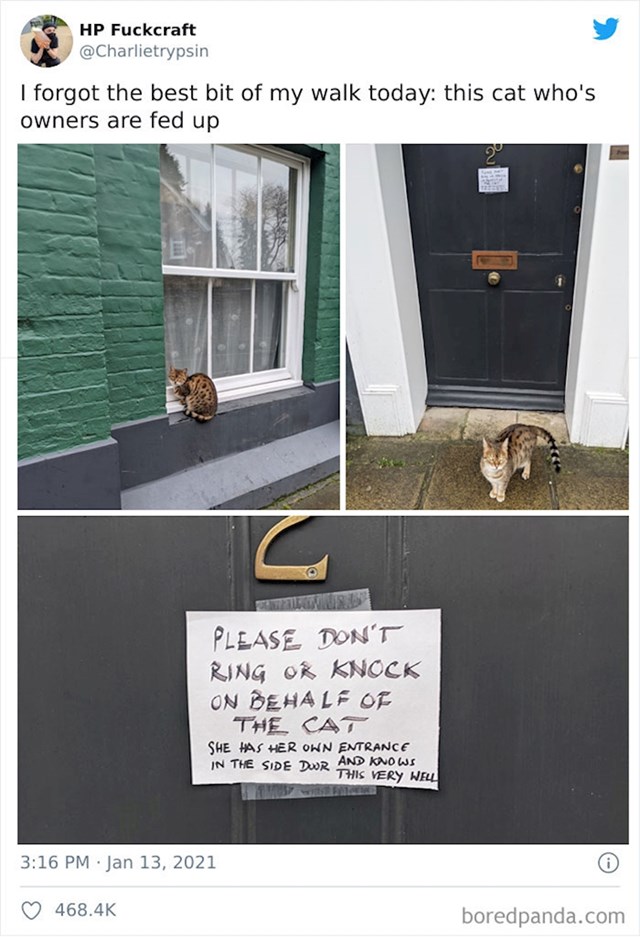 HP Fuckcraft
@Charlietrypsin
I forgot the best bit of my walk today: this cat who's
owners are fed up
2
2
PLEASE DON'T
RING OR KNOCK
ON BEHALF OF
THE CAT
SHE HAS HER OWN ENTRANCE
IN THE SIDE DOOR AND KNOWS
THIS VERY WELL
3:16 PM · Jan 13, 2021
468.4K
boredpanda.com